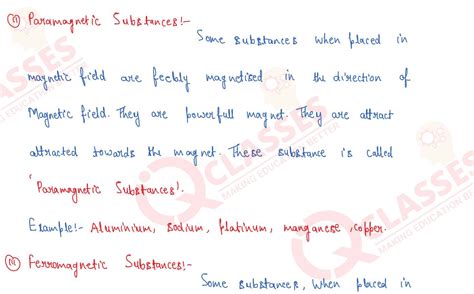 (ii) Paramagnetic Substances!-
Some substances when placed in
magnetic field are feebly magnetised in the direction of
Magnetic field. They are powerfull magnet. They are attract
attracted towards the magnet. These substance is called
"Paramagnetic Substances".
Example!- Aluminium, sodium, platinum, manganese, copper.
Ferromagnetic Substances!-
Some substances, when placed in
IQ CLASSES
MAKING EDUCATION BETTER